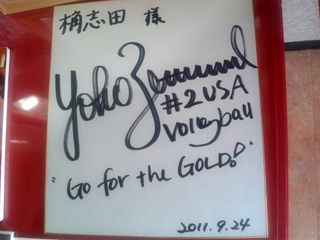 桷志田 様
Yoko Z
#2 USA
Volleyball
"Go for the GOLD!"
2011.9.24